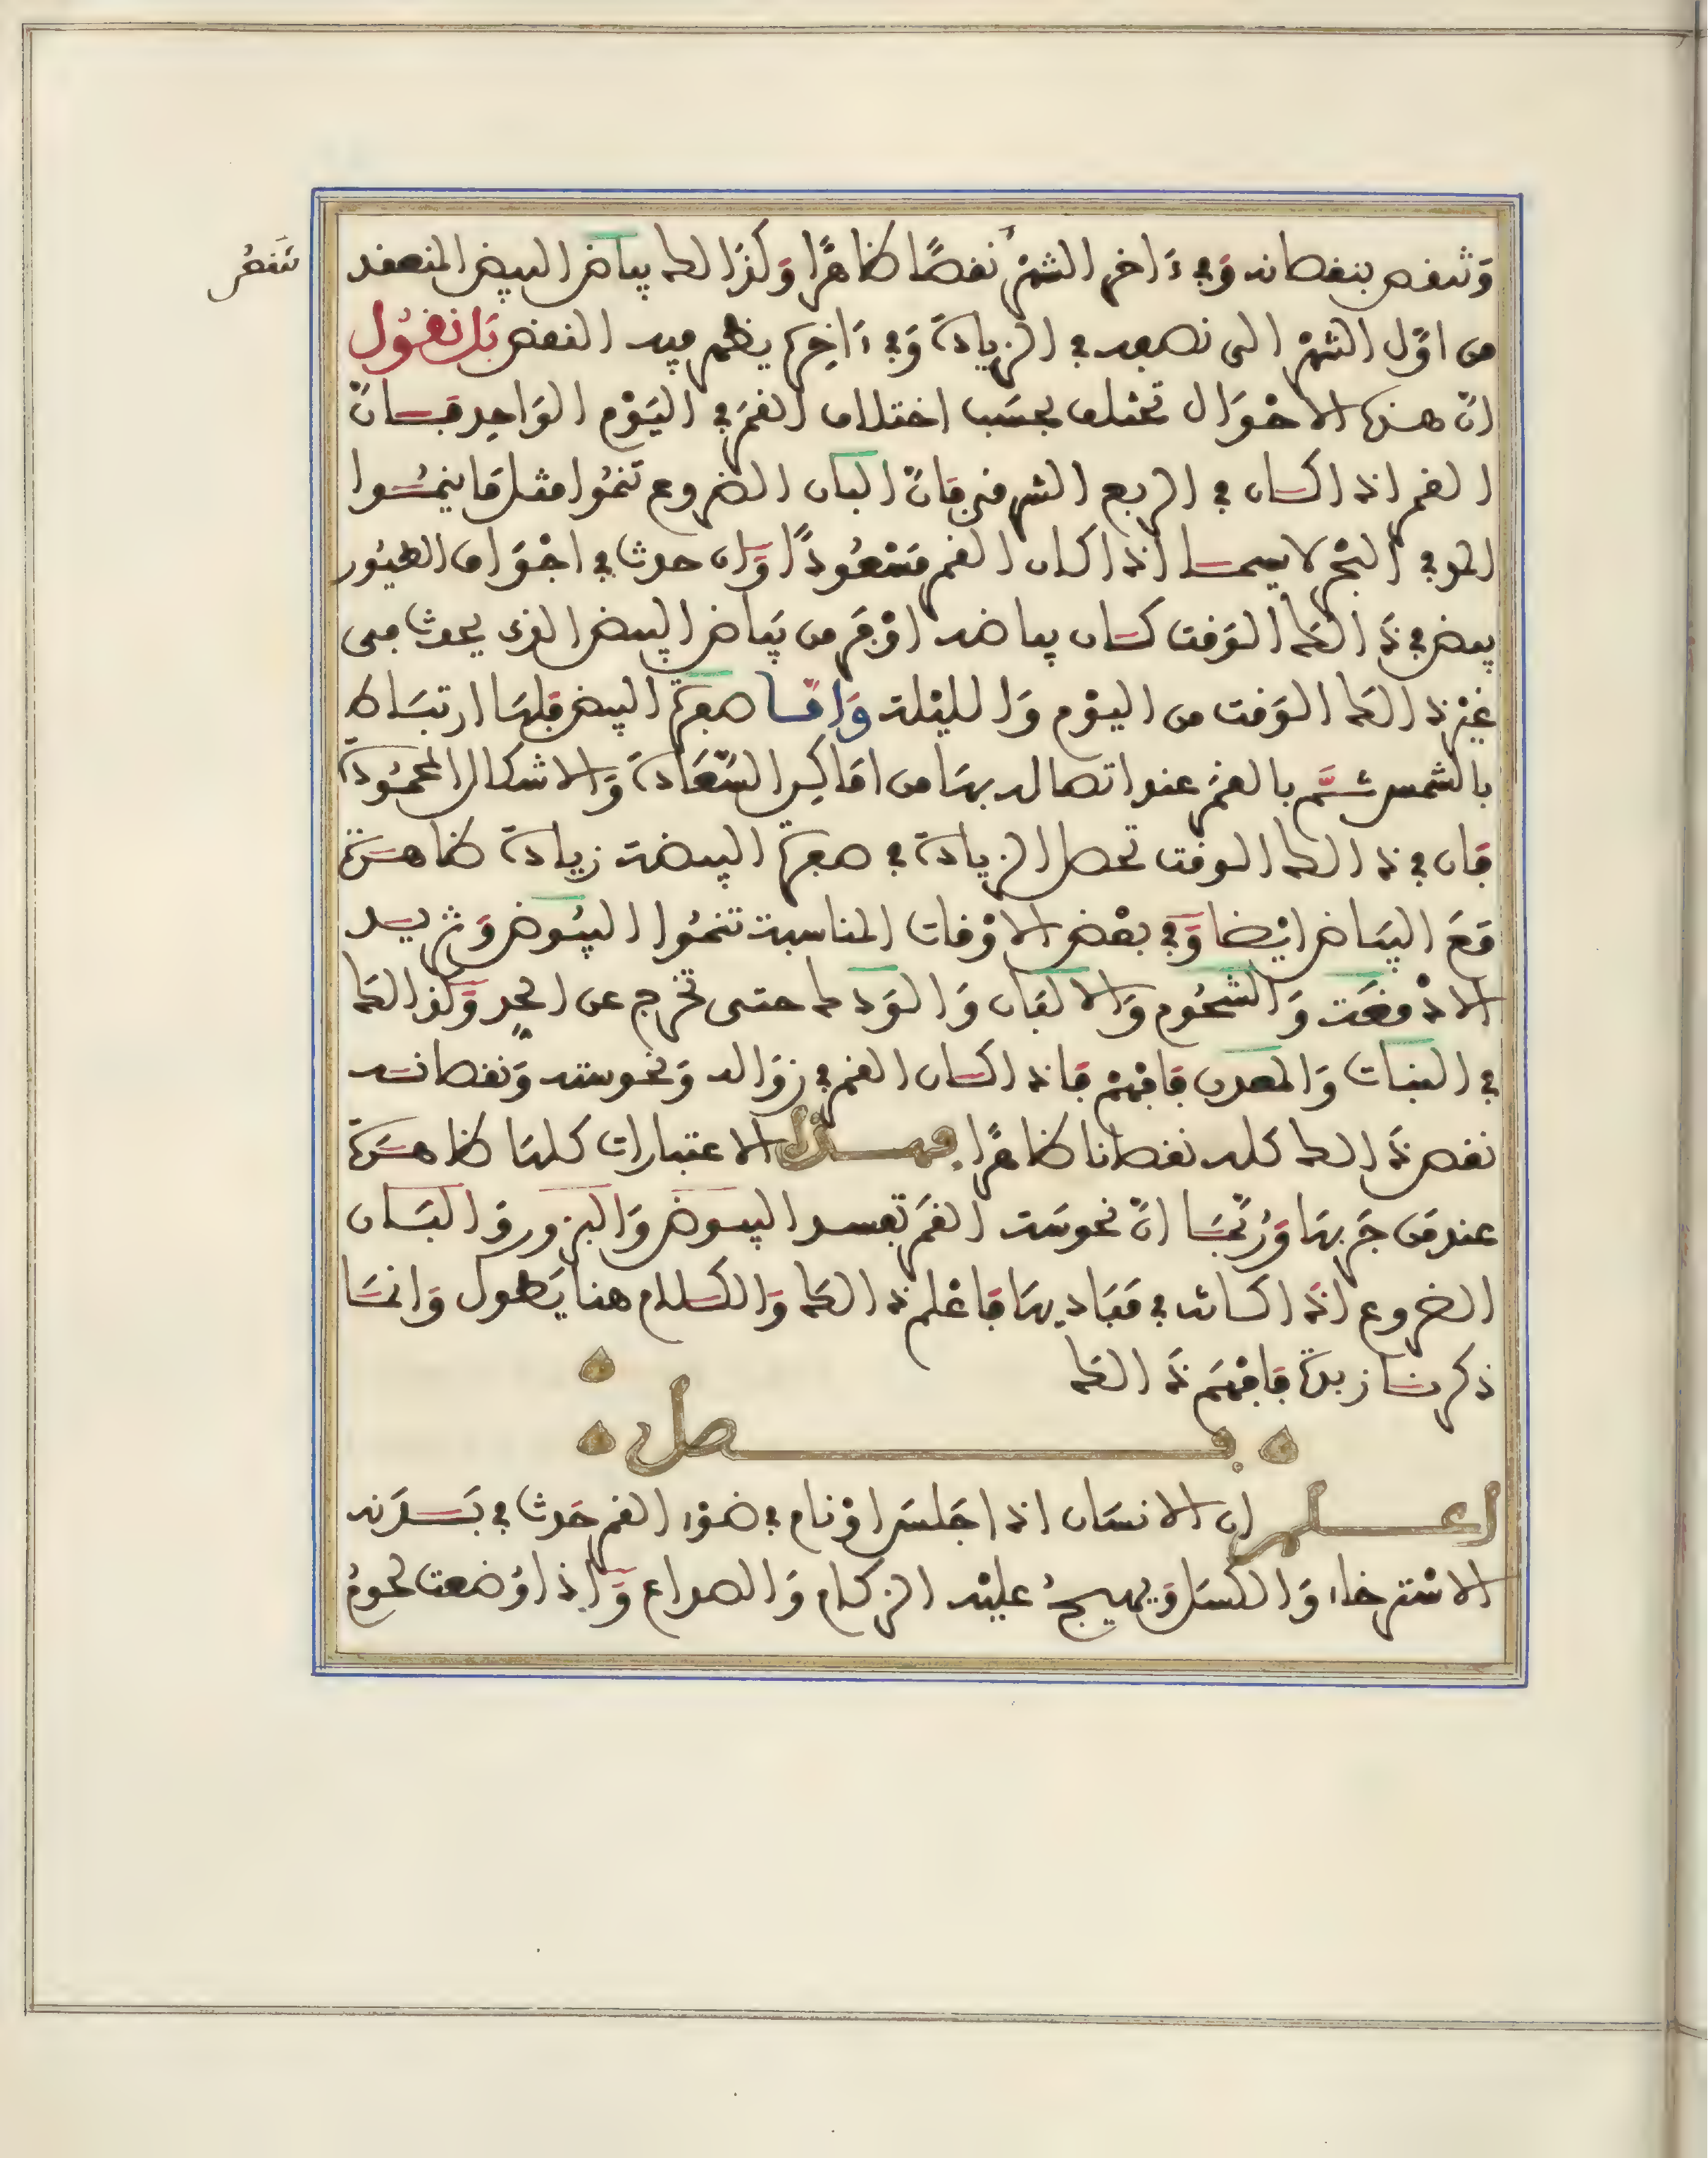 وتنقص بنقصانه وفي ءاخر الشهر نقصًا ظاهرًا وكذالك بياض البيض المنعقد
تنقصُ
من اوّل الشهر الى نصفه في الزيادة وفي ءاخِره يظهر فيه النقص بَل نقُول
انّ هذه الاحْوَال تختلف بحسَب اختلاف القمَر في اليَوْم الوَاحِد فان
القمر اذا كان في الربع الشرقي فانّ البان الضروع تنمُوا مثل ما ينمُوا
المد في البحْر لا سيما اذا كان القمر مَسْعُودًا وَان حدث في اجْوَاف الطيُور
بيض في ذَالك الوَقت كان بياضه اوْفَر من بَياض البيض الذي يحدث في
غيْر ذالك الوَقت من اليوْم وَالليْلة وَامّا صفرة البيض فلهَا ارتبَاط
بالشمس ثمَّ بالقمَر عند اتصاله بهَا من امَاكِن السَّعَادة وَالاشكال المحمُودة
فان في ذالك الوقت تحصل الزيادة في صفرة البيضة زيادة ظاهرَة
مَعَ البيَاض ايْضا وَفي بعْض الاوْقات المناسبة تنمُوا البيُوض وَتزيد
الادْمغَة وَالشحُوم وَالالبَان وَالوَدك حتى تخرج عن الحدِ وَكذالك
في النبَات وَالمعدن فافهمْ فاذا كان القمر في زوَاله وَنحوسته وَنقصانه
نقص ذَالك كله نقصانا ظاهرًا فهـذه الاعتبارات كلهَا ظاهرَة
عند مَن جَربهَا وَرُبّمَا انّ نحوسَة القمَر تفسد البيوض وَالبزور وَالبَان
الضروع اذَا كانت في مَبَاديهَا فاعْلم ذالك وَالكلام هنا يَطول وَانمَا
ذكرنا زبدة فافهَم ذَالك
فصل
اعلم ان الانسَان اذا جَلسَ اوْ نام في ضوْء القمر حَدث في بَدَنه
الاسْترخاء وَالكسَل وَيهيجُ عليْه الزكام وَالصداع وَاِذا وُضعت لحومُ